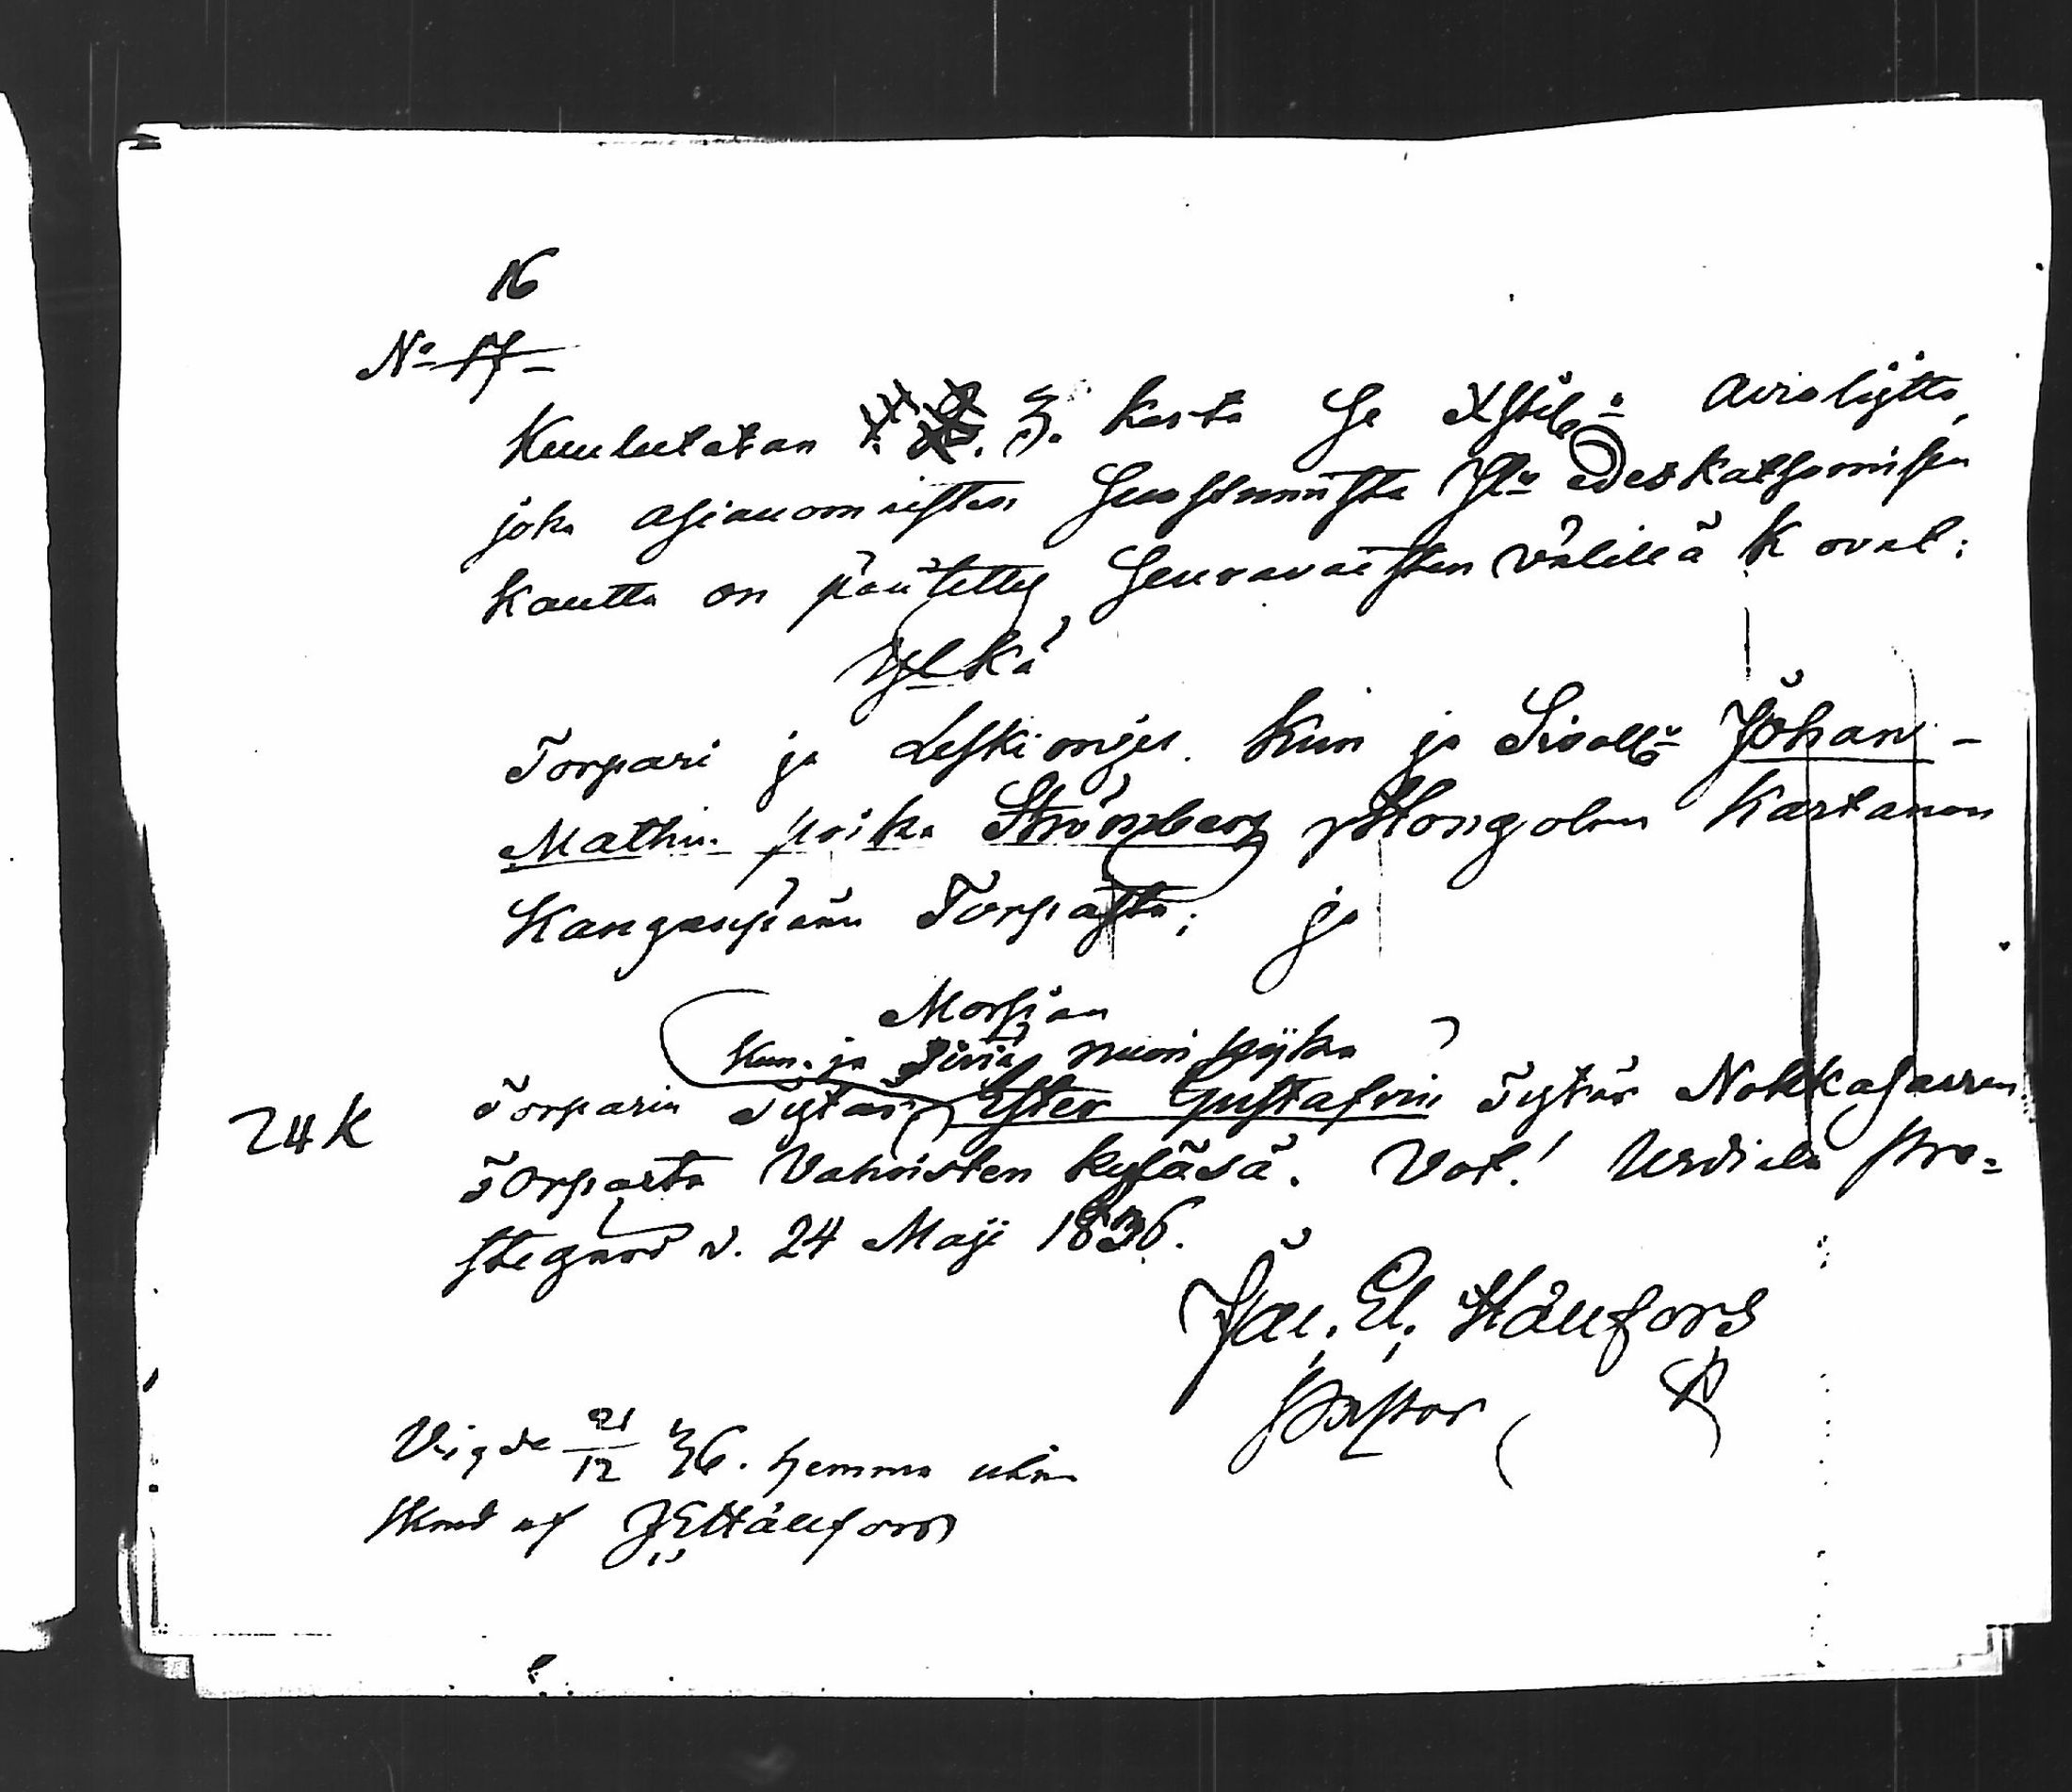 16
No 17
Kuulutetan 1. 2. 3. kerta Se Xstil. Avioliitto,
joka asianomaisten suostumusta ja edeskatsomisen
kautta on päätetty seuravaisten välillä K oval:
Ylkä
Torpari ja Leskimjes. Kun ja Siveall. Johan
Mathin poika Strömberg Hongolan Kartanon
Kangaspään Torpasta; ja
Morsian
Kun. ja Siviä nuori pijka
24 k Torparin Tytär Ester Gustafvin Tytär Nokkasaaren
Torpasta Vahoisten kyläsä. Vot! Urdiala Pro=
stegård d. 24 Maji 1836.
Jac. El. Hällfors
Pastor
Vigde 21/12 36. hemma utan
skrud af J E Hällfors